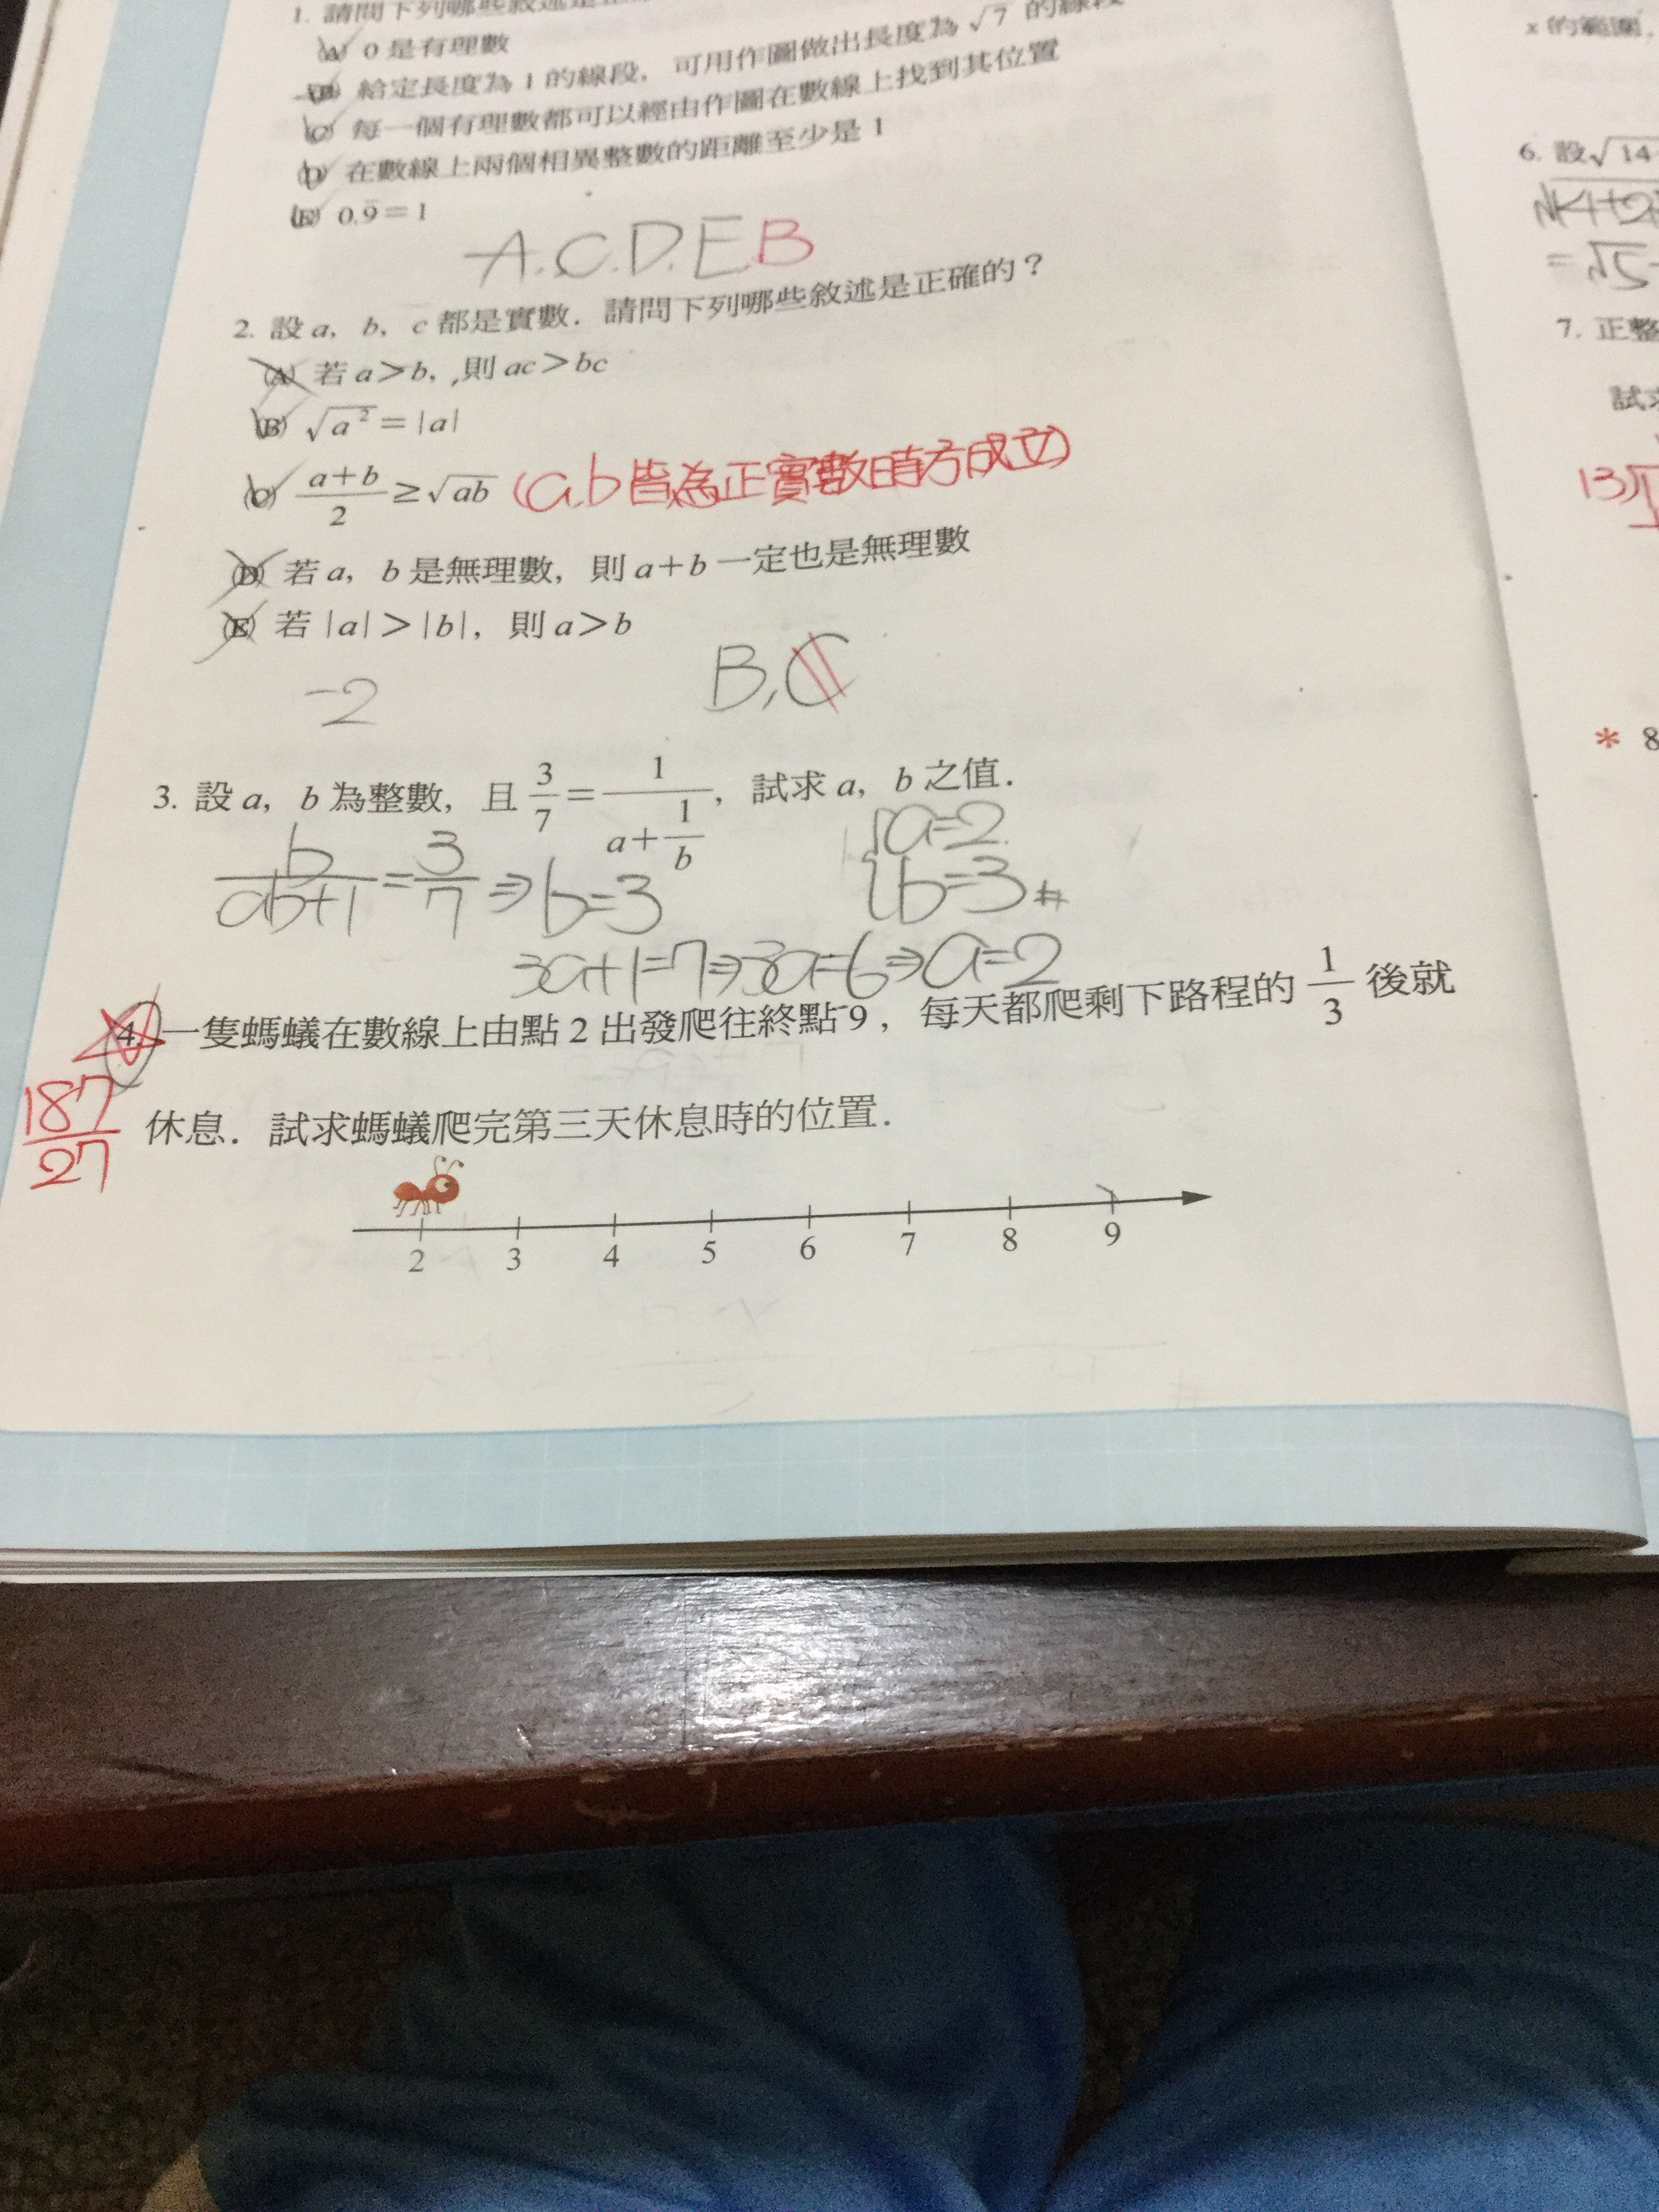 1. 請問下列哪些敘述是正
(A) 0 是有理數
(B) 給定長度為 1 的線段，可用作圖做出長度為 √7 的線段
(C) 每一個有理數都可以經由作圖在數線上找到其位置
(D) 在數線上兩個相異整數的距離至少是 1
(E) 0.9̅=1
A.C.D.E.B
2. 設 a，b，c 都是實數．請問下列哪些敘述是正確的？
(A) 若 a>b，則 ac>bc
(B) √a²=|a|
(C) (a+b)/2≥√ab (a.b皆為正實數時方成立)
(D) 若 a，b 是無理數，則 a+b 一定也是無理數
(E) 若 |a|>|b|，則 a>b
-2
B,C
3. 設 a，b 為整數，且 3/7=1/(a+1/b)，試求 a，b 之值．
b/(ab+1)=3/7⇒b=3
{a=2
{b=3#
3a+1=7⇒3a=6⇒a=2
4. 一隻螞蟻在數線上由點 2 出發爬往終點 9，每天都爬剩下路程的 1/3 後就
休息．試求螞蟻爬完第三天休息時的位置．
187/27
2 3 4 5 6 7 8 9
x 的範圍．
6. 設√14
=√5-
7. 正整
試求
13)
* 8